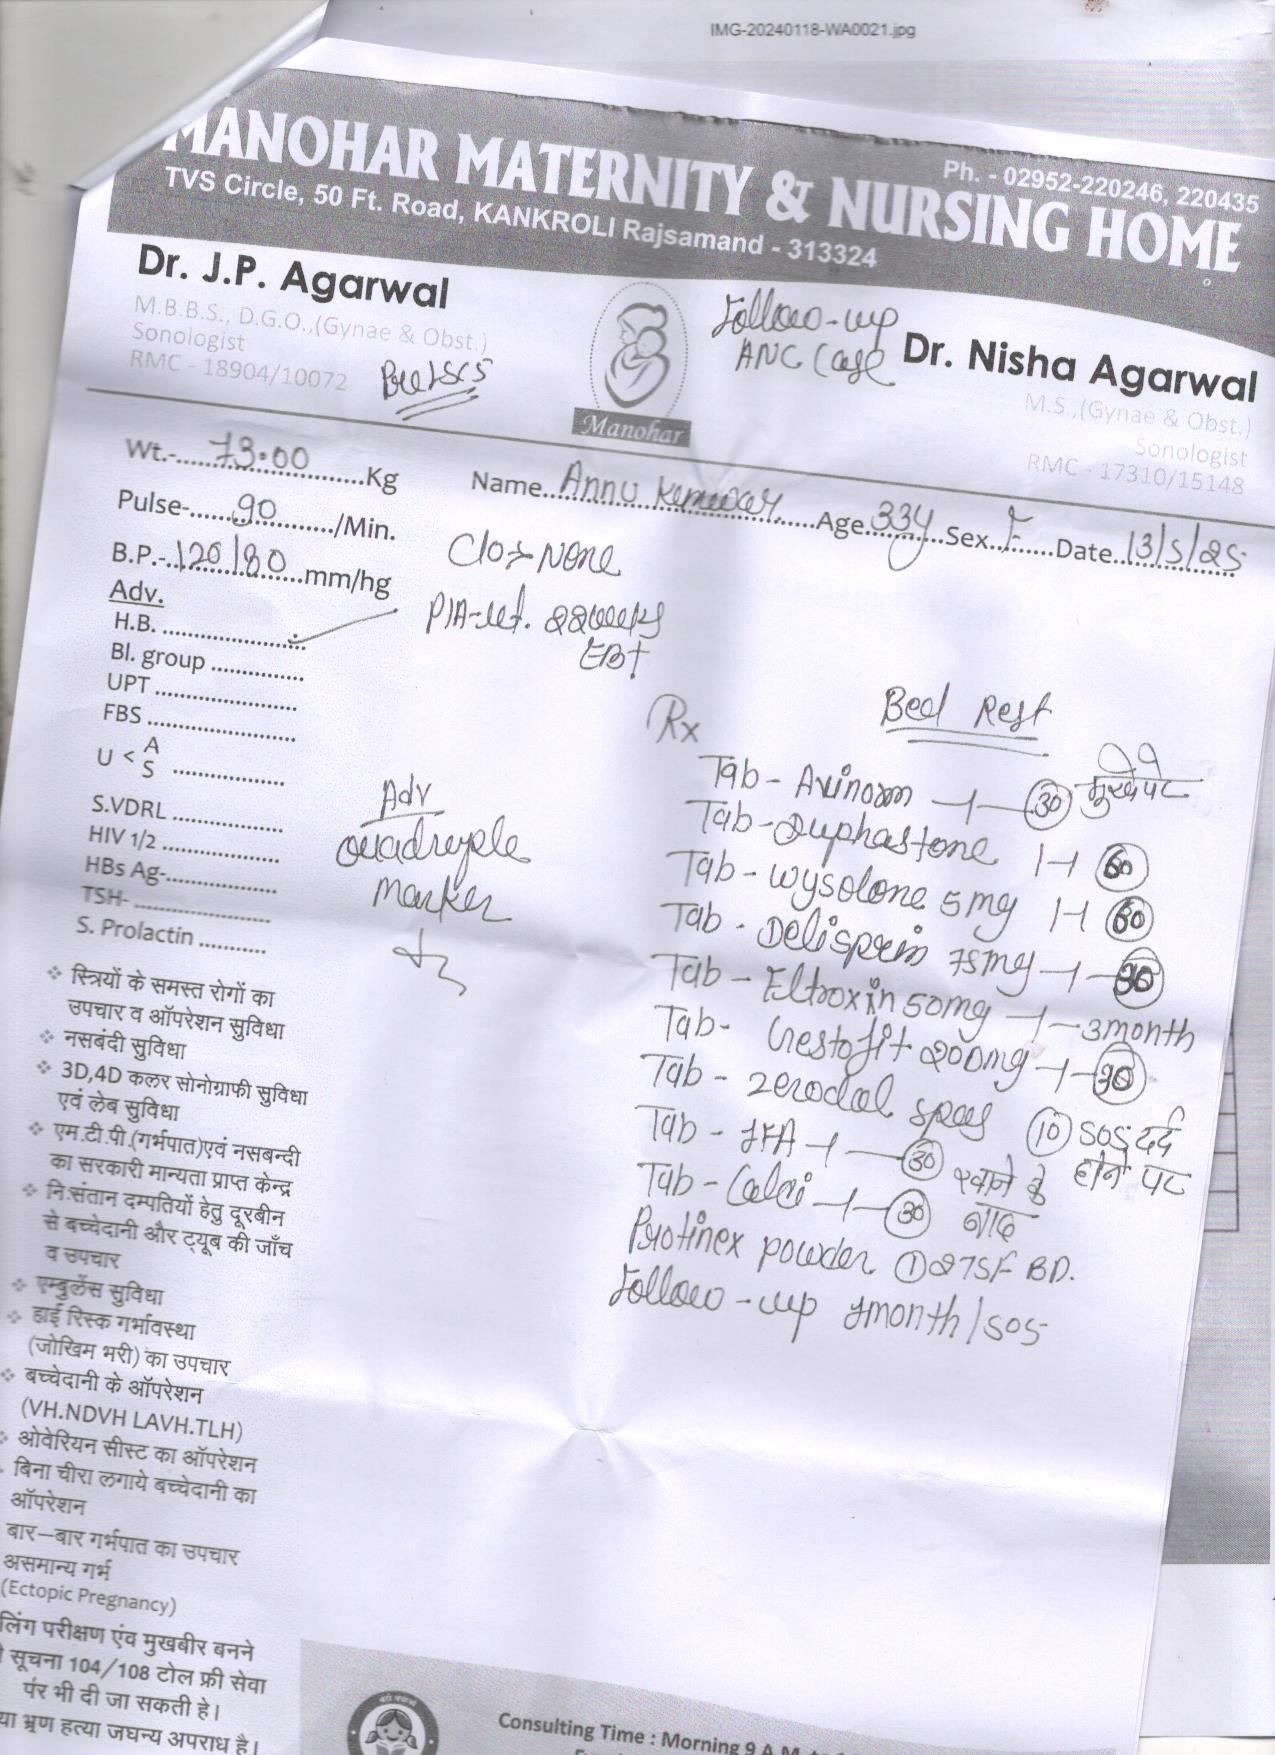 IMG-20240118-WA0021.jpg
MANOHAR MATERNITY & NURSING HOME
Ph. - 02952-220246, 220435
TVS Circle, 50 Ft. Road, KANKROLI Rajsamand - 313324
Dr. J.P. Agarwal
M.B.B.S., D.G.O.,(Gynae & Obst.)
Sonologist
RMC - 18904/10072
Manohar
Follow-up
ANC Case
Dr. Nisha Agarwal
M.S.,(Gynae & Obst.)
Sonologist
RMC - 17310/15148
Wt.- 73.00 Kg
Name Annu Kunwar Age 33y Sex F Date 13/5/25
Pulse- 90 /Min.
B.P.- 120/80 mm/hg
C/o → None
P/A - ut. 22 weeks
Adv.
H.B.
Bl. group
UPT
FBS
U < A S
S.VDRL
HIV 1/2
HBs Ag-
TSH-
S. Prolactin
Adv
Quadruple
Marker
Bed Rest
Rx
Tab - Avinorm -1- 30 भूखे पेट
Tab - Duphastone 1-1 60
Tab - Wysolone 5mg 1-1 60
Tab - Delisprin 75mg -1- 30
Tab - Eltroxin 50mg -1- 3month
Tab - Gestofit 200mg -1- 30
Tab - Zerodol spas 10 SOS दर्द होने पर
Tab - IFA -1- 30 खाने के बाद
Tab - Calci -1- 30
Protinex powder ① 2TSF BD.
Follow-up 1month/SOS
❖ स्त्रियों के समस्त रोगों का
उपचार व ऑपरेशन सुविधा
❖ नसबंदी सुविधा
❖ 3D,4D कलर सोनोग्राफी सुविधा
एवं लेब सुविधा
❖ एम.टी.पी.(गर्भपात)एवं नसबन्दी
का सरकारी मान्यता प्राप्त केन्द्र
❖ नि:संतान दम्पतियों हेतु दूरबीन
से बच्चेदानी और ट्यूब की जाँच
व उपचार
❖ एम्बुलेंस सुविधा
❖ हाई रिस्क गर्भावस्था
(जोखिम भरी) का उपचार
❖ बच्चेदानी के ऑपरेशन
(VH.NDVH LAVH.TLH)
ओवेरियन सीस्ट का ऑपरेशन
बिना चीरा लगाये बच्चेदानी का
ऑपरेशन
बार–बार गर्भपात का उपचार
असमान्य गर्भ
(Ectopic Pregnancy)
लिंग परीक्षण एंव मुखबीर बनने
सूचना 104/108 टोल फ्री सेवा
पर भी दी जा सकती हे।
भ्रूण हत्या जघन्य अपराध है।
Consulting Time : Morning 9 A.M.